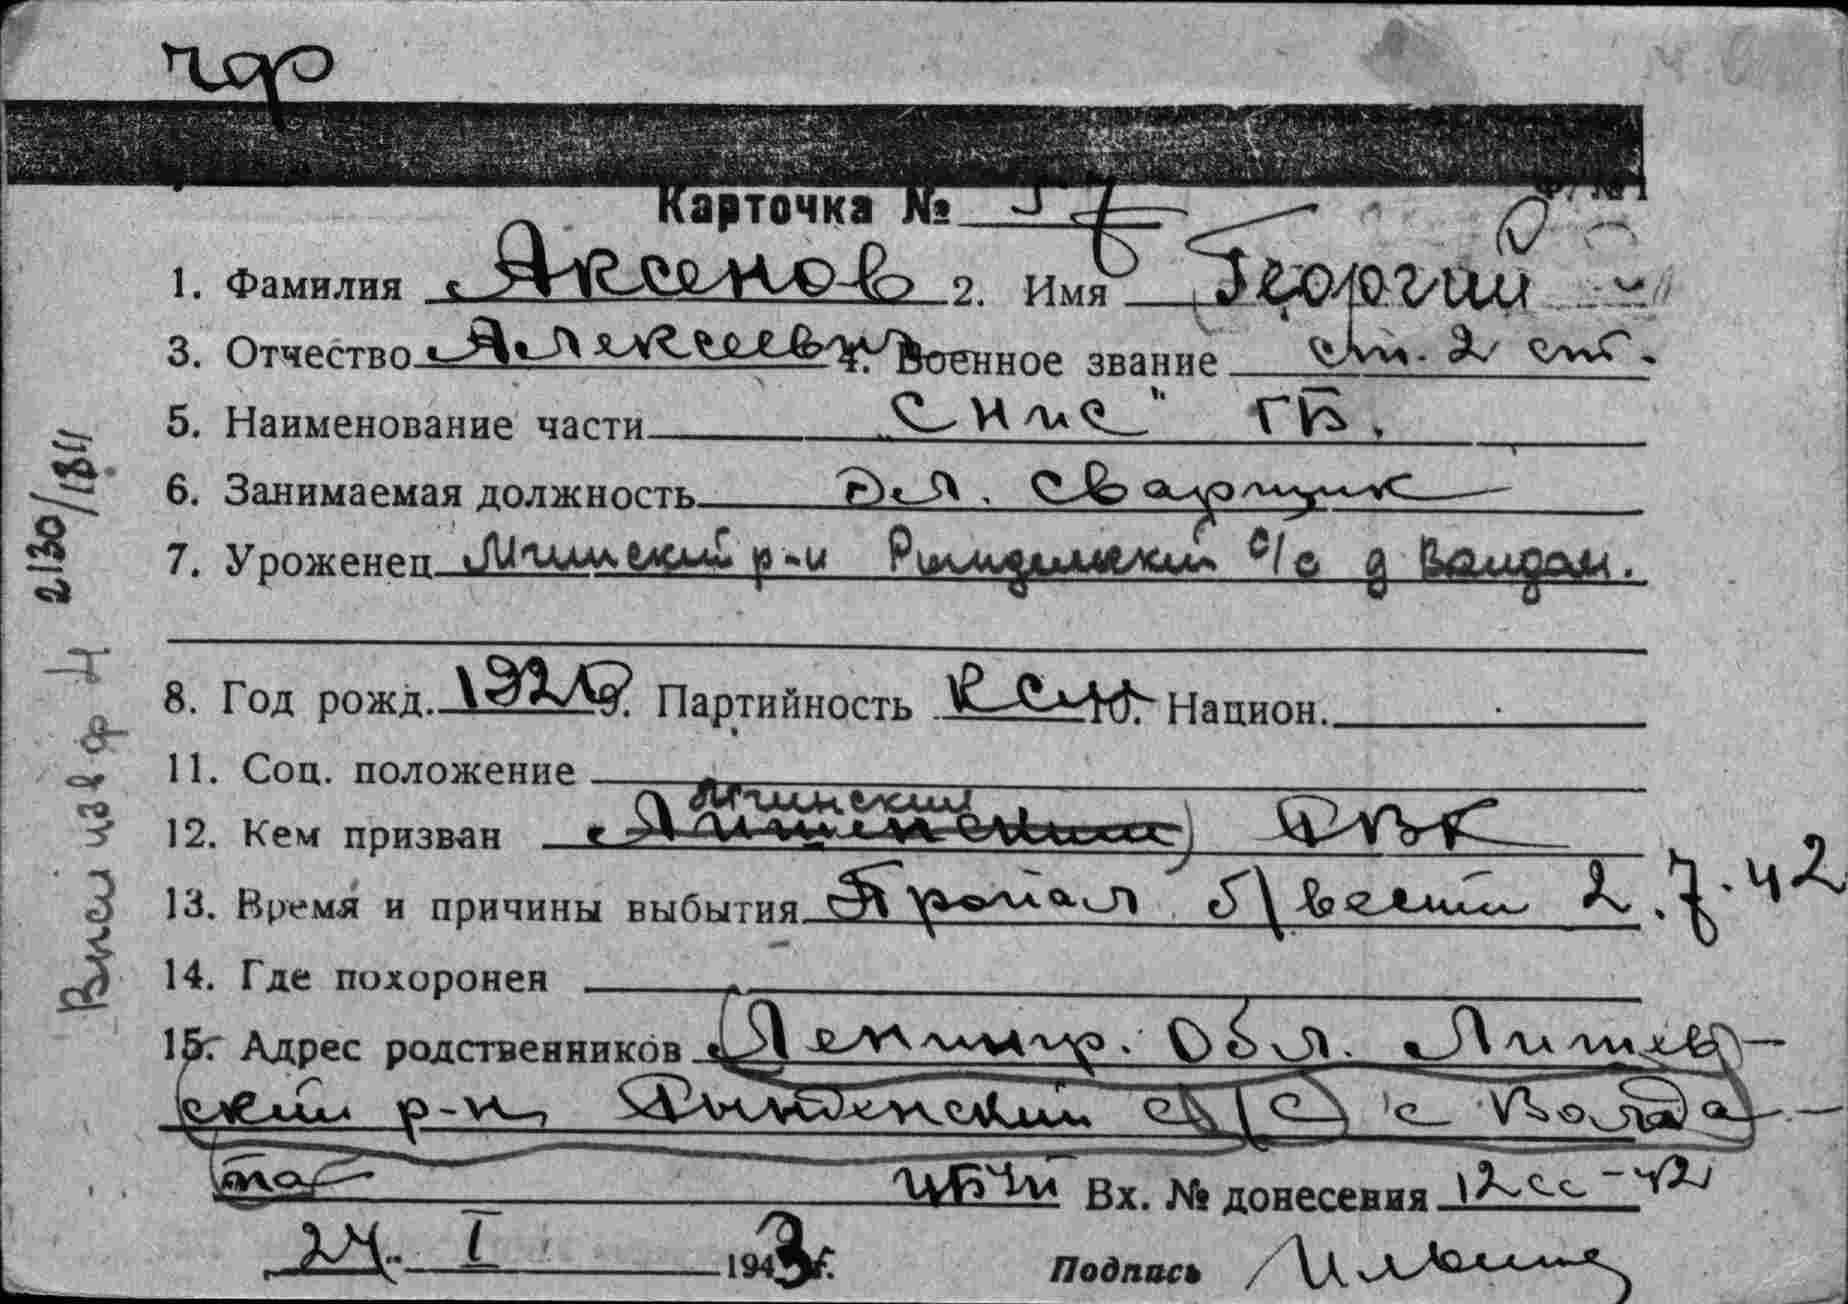 чф
Карточка № 57
1. Фамилия Аксенов 2. Имя Георгий
3. Отчество Алексеевич 4. Военное звание ст. 2 ст.
5. Наименование части СНиС" ГБ.
6. Занимаемая должность Эл. Сварщик
7. Уроженец Мгинский р-н с/с д
8. Год рожд. 192 9. Партийность КСМ 10. Национ.
11. Соц. положение
Мгинский
12. Кем призван РВК
13. Время и причины выбытия Пропал б/вести 2.7.42
14. Где похоронен
15. Адрес родственников Ленингр. Обл.
ский р-н, с/с с
Вх. № донесения 12сс-42
24. I 1943 г. Подпись
2130/1811
Вили из ф 4